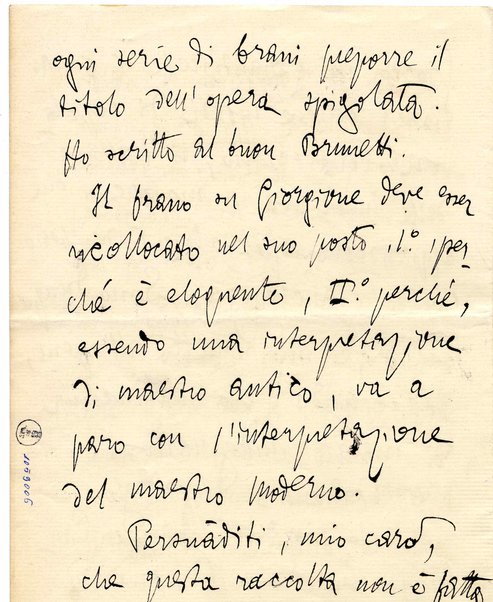 ogni serie di brani preporre il
titolo dell'opera spigolata.
Ho scritto al buon Brunetti.
Il brano su Giorgione deve esser
ricollocato nel suo posto, 1.° per-
ché è eloquente, II.° perché,
essendo una interpretazione
di maestro antico, va a
paro con l'interpretazione
del maestro moderno.
Persuàditi, mio caro,
che questa raccolta non è fatta
1059006